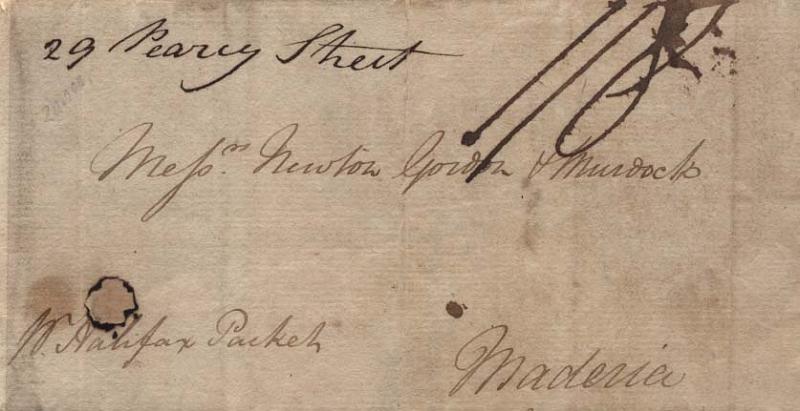 29 Pearcy Street
Messrs. Newton Gordon & Murdock
pr. Halifax Packet
Maderia